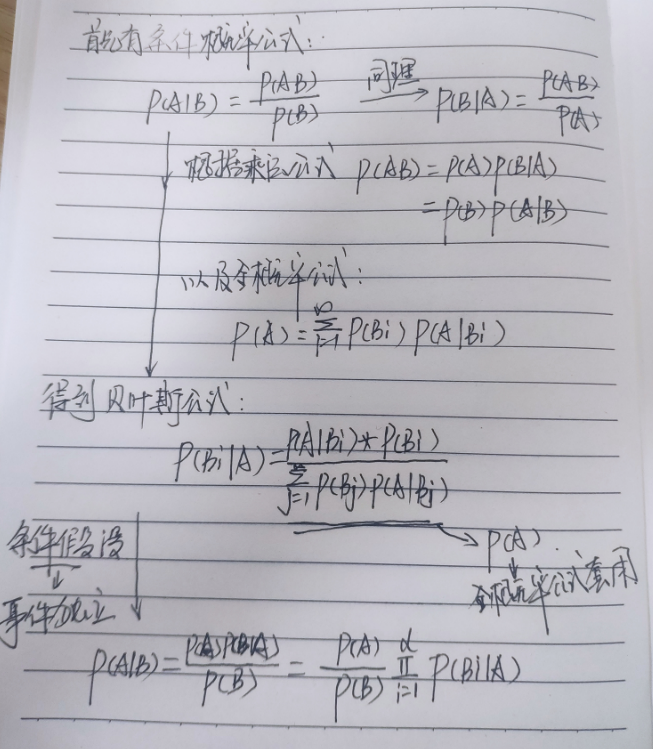 首先有条件概率公式:
P(A|B) = P(AB)/P(B) 同理→ P(B|A) = P(AB)/P(A)
根据乘法公式 P(AB) = P(A)P(B|A)
= P(B)P(A|B)
以及全概率公式:
P(A) = ∑_{i=1}^{∞} P(Bi) P(A|Bi)
得到贝叶斯公式:
P(Bi|A) = P(A|Bi)*P(Bi) / ∑_{j=1} P(Bj)P(A|Bj)
→ P(A)
条件假设
全概率公式套用
事件独立
P(A|B) = P(A)P(B|A)/P(B) = P(A)/P(B) ∏_{i=1}^{d} P(Bi|A)